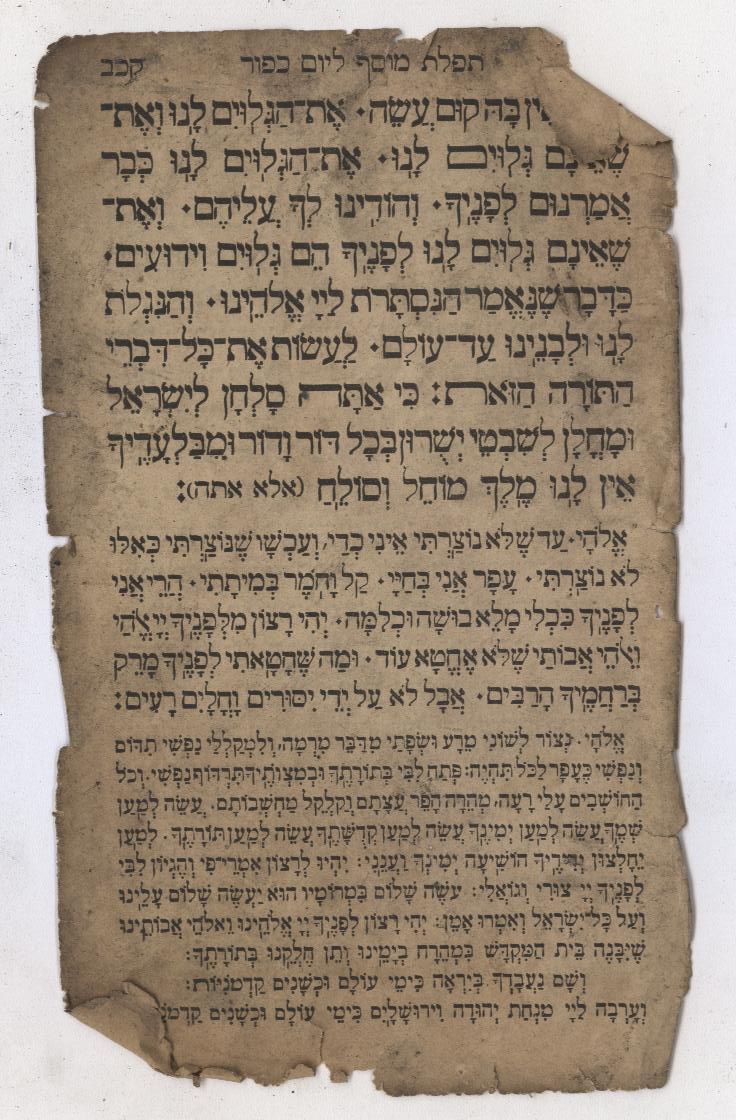 תפלת מוסף ליום כפור קכב
בָּהּ קוּם עֲשֵׂה׃ אֶת־הַגְּלוּיִם לָנוּ וְאֶת־
שֶׁאֵינָם גְּלוּיִם לָנוּ׃ אֶת־הַגְּלוּיִם לָנוּ כְּבָר
אֲמַרְנוּם לְפָנֶיךָ׃ וְהוֹדִינוּ לְךָ עֲלֵיהֶם׃ וְאֶת־
שֶׁאֵינָם גְּלוּיִם לָנוּ לְפָנֶיךָ הֵם גְּלוּיִם וִידוּעִים׃
כַּדָּבָר שֶׁנֶּאֱמַר הַנִּסְתָּרֹת לַיְיָ אֱלֹהֵינוּ׃ וְהַנִּגְלֹת
לָנוּ וּלְבָנֵינוּ עַד־עוֹלָם׃ לַעֲשׂוֹת אֶת־כָּל־דִּבְרֵי
הַתּוֹרָה הַזֹּאת׃ כִּי אַתָּה סָלְחָן לְיִשְׂרָאֵל
וּמָחֳלָן לְשִׁבְטֵי יְשֻׁרוּן בְּכָל דּוֹר וָדוֹר וּמִבַּלְעָדֶיךָ
אֵין לָנוּ מֶלֶךְ מוֹחֵל וְסוֹלֵחַ (אלא אתה)׃
אֱלֹהַי׃ עַד שֶׁלֹּא נוֹצַרְתִּי אֵינִי כְדַי, וְעַכְשָׁו שֶׁנּוֹצַרְתִּי כְּאִלּוּ
לֹא נוֹצַרְתִּי׃ עָפָר אֲנִי בְּחַיָּי׃ קַל וָחֹמֶר בְּמִיתָתִי׃ הֲרֵי אֲנִי
לְפָנֶיךָ כִּכְלִי מָלֵא בוּשָׁה וּכְלִמָּה׃ יְהִי רָצוֹן מִלְּפָנֶיךָ יְיָ אֱלֹהַי
וֵאלֹהֵי אֲבוֹתַי שֶׁלֹּא אֶחֱטָא עוֹד׃ וּמַה שֶּׁחָטָאתִי לְפָנֶיךָ מָרֵק
בְּרַחֲמֶיךָ הָרַבִּים׃ אֲבָל לֹא עַל יְדֵי יִסּוּרִים וָחֳלָיִם רָעִים׃
אֱלֹהַי. נְצוֹר לְשׁוֹנִי מֵרָע וּשְׂפָתַי מִדַּבֵּר מִרְמָה, וְלִמְקַלְלַי נַפְשִׁי תִדּוֹם
וְנַפְשִׁי כֶּעָפָר לַכֹּל תִּהְיֶה׃ פְּתַח לִבִּי בְּתוֹרָתֶךָ וּבְמִצְוֹתֶיךָ תִּרְדּוֹף נַפְשִׁי. וְכֹל
הַחוֹשְׁבִים עָלַי רָעָה, מְהֵרָה הָפֵר עֲצָתָם וְקַלְקֵל מַחְשְׁבוֹתָם. עֲשֵׂה לְמַעַן
שְׁמֶךָ עֲשֵׂה לְמַעַן יְמִינֶךָ עֲשֵׂה לְמַעַן קְדֻשָּׁתֶךָ עֲשֵׂה לְמַעַן תּוֹרָתֶךָ. לְמַעַן
יֵחָלְצוּן יְדִידֶיךָ הוֹשִׁיעָה יְמִינְךָ וַעֲנֵנִי׃ יִהְיוּ לְרָצוֹן אִמְרֵי־פִי וְהֶגְיוֹן לִבִּי
לְפָנֶיךָ יְיָ צוּרִי וְגוֹאֲלִי׃ עֹשֶׂה שָׁלוֹם בִּמְרוֹמָיו הוּא יַעֲשֶׂה שָׁלוֹם עָלֵינוּ
וְעַל כָּל־יִשְׂרָאֵל וְאִמְרוּ אָמֵן׃ יְהִי רָצוֹן לְפָנֶיךָ יְיָ אֱלֹהֵינוּ וֵאלֹהֵי אֲבוֹתֵינוּ
שֶׁיִּבָּנֶה בֵּית הַמִּקְדָּשׁ בִּמְהֵרָה בְיָמֵינוּ וְתֵן חֶלְקֵנוּ בְּתוֹרָתֶךָ׃
וְשָׁם נַעֲבָדְךָ בְּיִרְאָה כִּימֵי עוֹלָם וּכְשָׁנִים קַדְמֹנִיּוֹת׃
וְעָרְבָה לַיְיָ מִנְחַת יְהוּדָה וִירוּשָׁלָיִם כִּימֵי עוֹלָם וּכְשָׁנִים